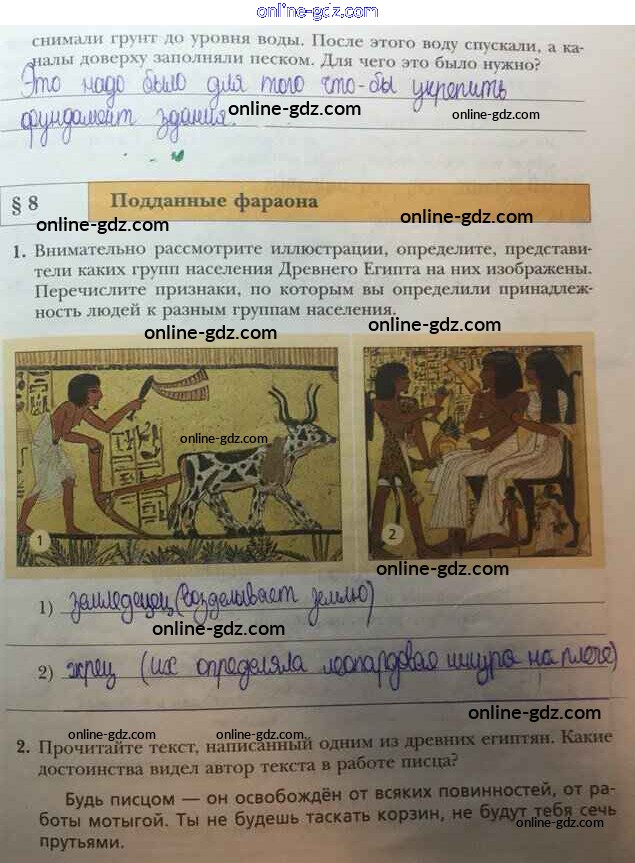 online-gdz.com
снимали грунт до уровня воды. После этого воду спускали, а ка-
налы доверху заполняли песком. Для чего это было нужно?
Это надо было для того что-бы укрепить
online-gdz.com
online-gdz.com
фундамент здания.
§ 8
Подданные фараона
online-gdz.com
online-gdz.com
1. Внимательно рассмотрите иллюстрации, определите, представи-
тели каких групп населения Древнего Египта на них изображены.
Перечислите признаки, по которым вы определили принадлеж-
ность людей к разным группам населения.
online-gdz.com
online-gdz.com
online-gdz.com
online-gdz.com
1
2
online-gdz.com
1) земледелец (возделывает землю)
online-gdz.com
2) жрец (их определяла леопардовая шкура на плече)
online-gdz.com
online-gdz.com
online-gdz.com
2. Прочитайте текст, написанный одним из древних египтян. Какие
достоинства видел автор текста в работе писца?
Будь писцом — он освобождён от всяких повинностей, от ра-
боты мотыгой. Ты не будешь таскать корзин, не будут тебя сечь
online-gdz.com
прутьями.